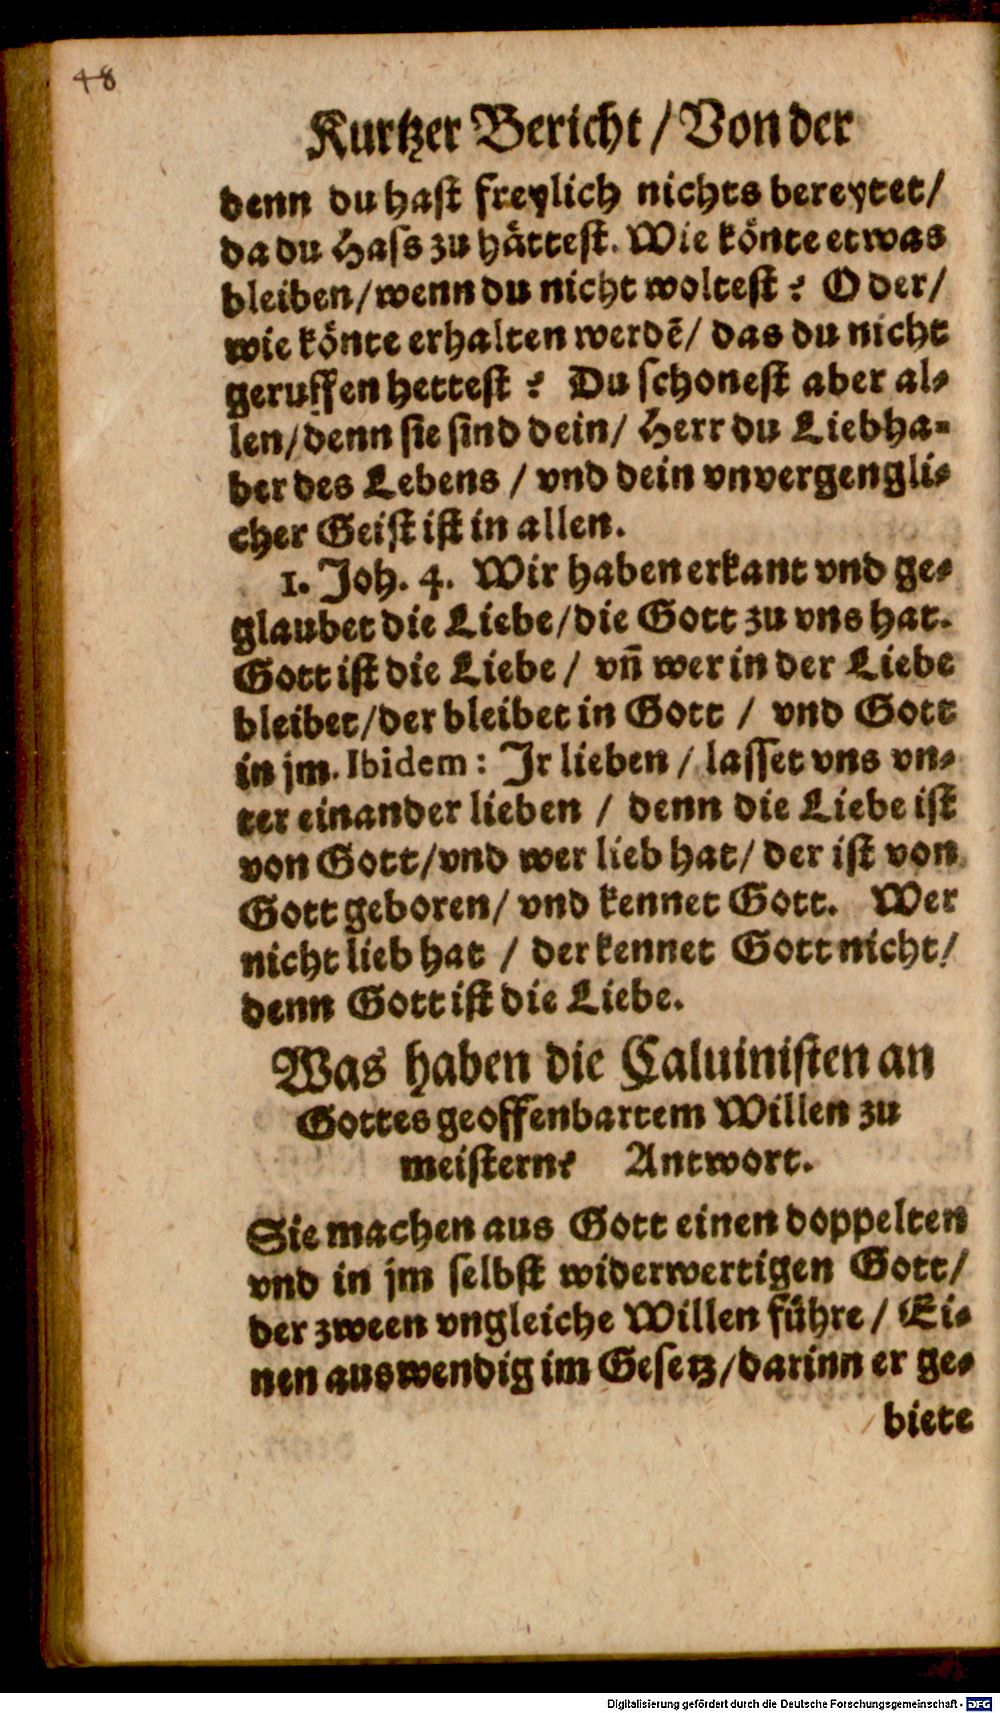 48
Kurtzer Bericht / Von der
denn du hast freylich nichts bereytet/
da du Hass zu hättest. Wie könte etwas
bleiben/wenn du nicht woltest? Oder/
wie könte erhalten werdē/ das du nicht
geruffen hettest? Du schonest aber al-
len/denn sie sind dein/ Herr du Liebha-
ber des Lebens / vnd dein vnvergengli-
cher Geist ist in allen.
1. Joh. 4. Wir haben erkant vnd ge-
glaubet die Liebe/die Gott zu vns hat.
Gott ist die Liebe / vñ wer in der Liebe
bleibet/der bleibet in Gott / vnd Gott
in jm. Ibidem: Jr lieben / lasset vns vn-
ter einander lieben / denn die Liebe ist
von Gott/vnd wer lieb hat/ der ist von
Gott geboren/ vnd kennet Gott. Wer
nicht lieb hat / der kennet Gott nicht/
denn Gott ist die Liebe.
Was haben die Caluinisten an
Gottes geoffenbartem Willen zu
meistern? Antwort.
Sie machen aus Gott einen doppelten
vnd in jm selbst widerwertigen Gott/
der zween vngleiche Willen führe / Ei-
nen auswendig im Gesetz/darinn er ge-
biete
Digitalisierung gefördert durch die Deutsche Forschungsgemeinschaft - DFG